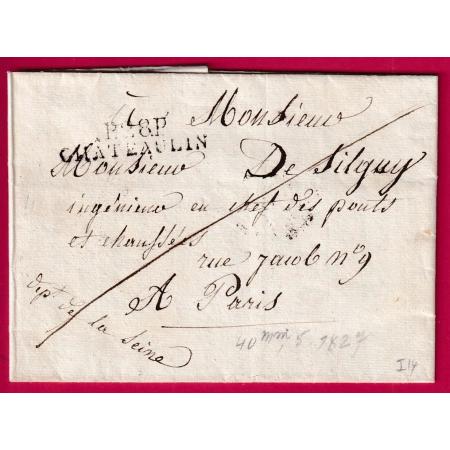 A Monsieur
P.28.P.
CHATEAULIN
Monsieur De Silguy
ingénieur en chef des ponts
et chaussées
rue Jacob n° 9
A Paris
dépt. de la Seine
40 mm 5 1827
I 14